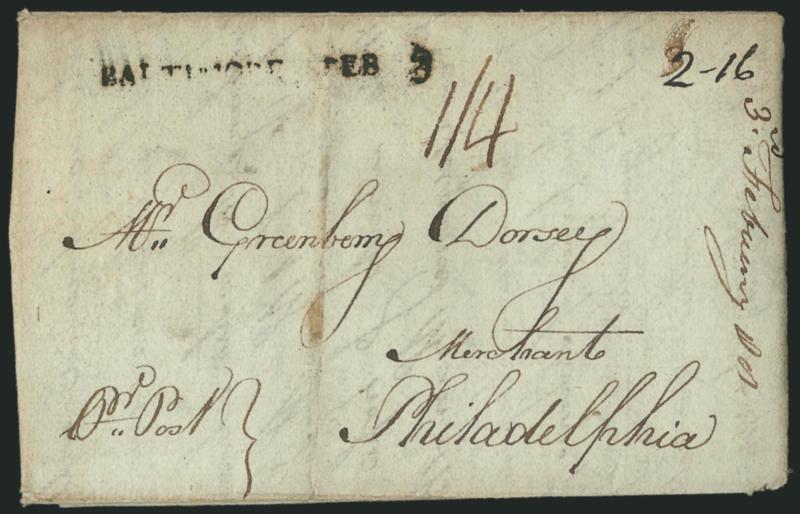 BALTIMORE FEB 3
2-16
1/4
Mr. Greenberry Dorsey
Merchant
Pr. Post
Philadelphia
3rd February